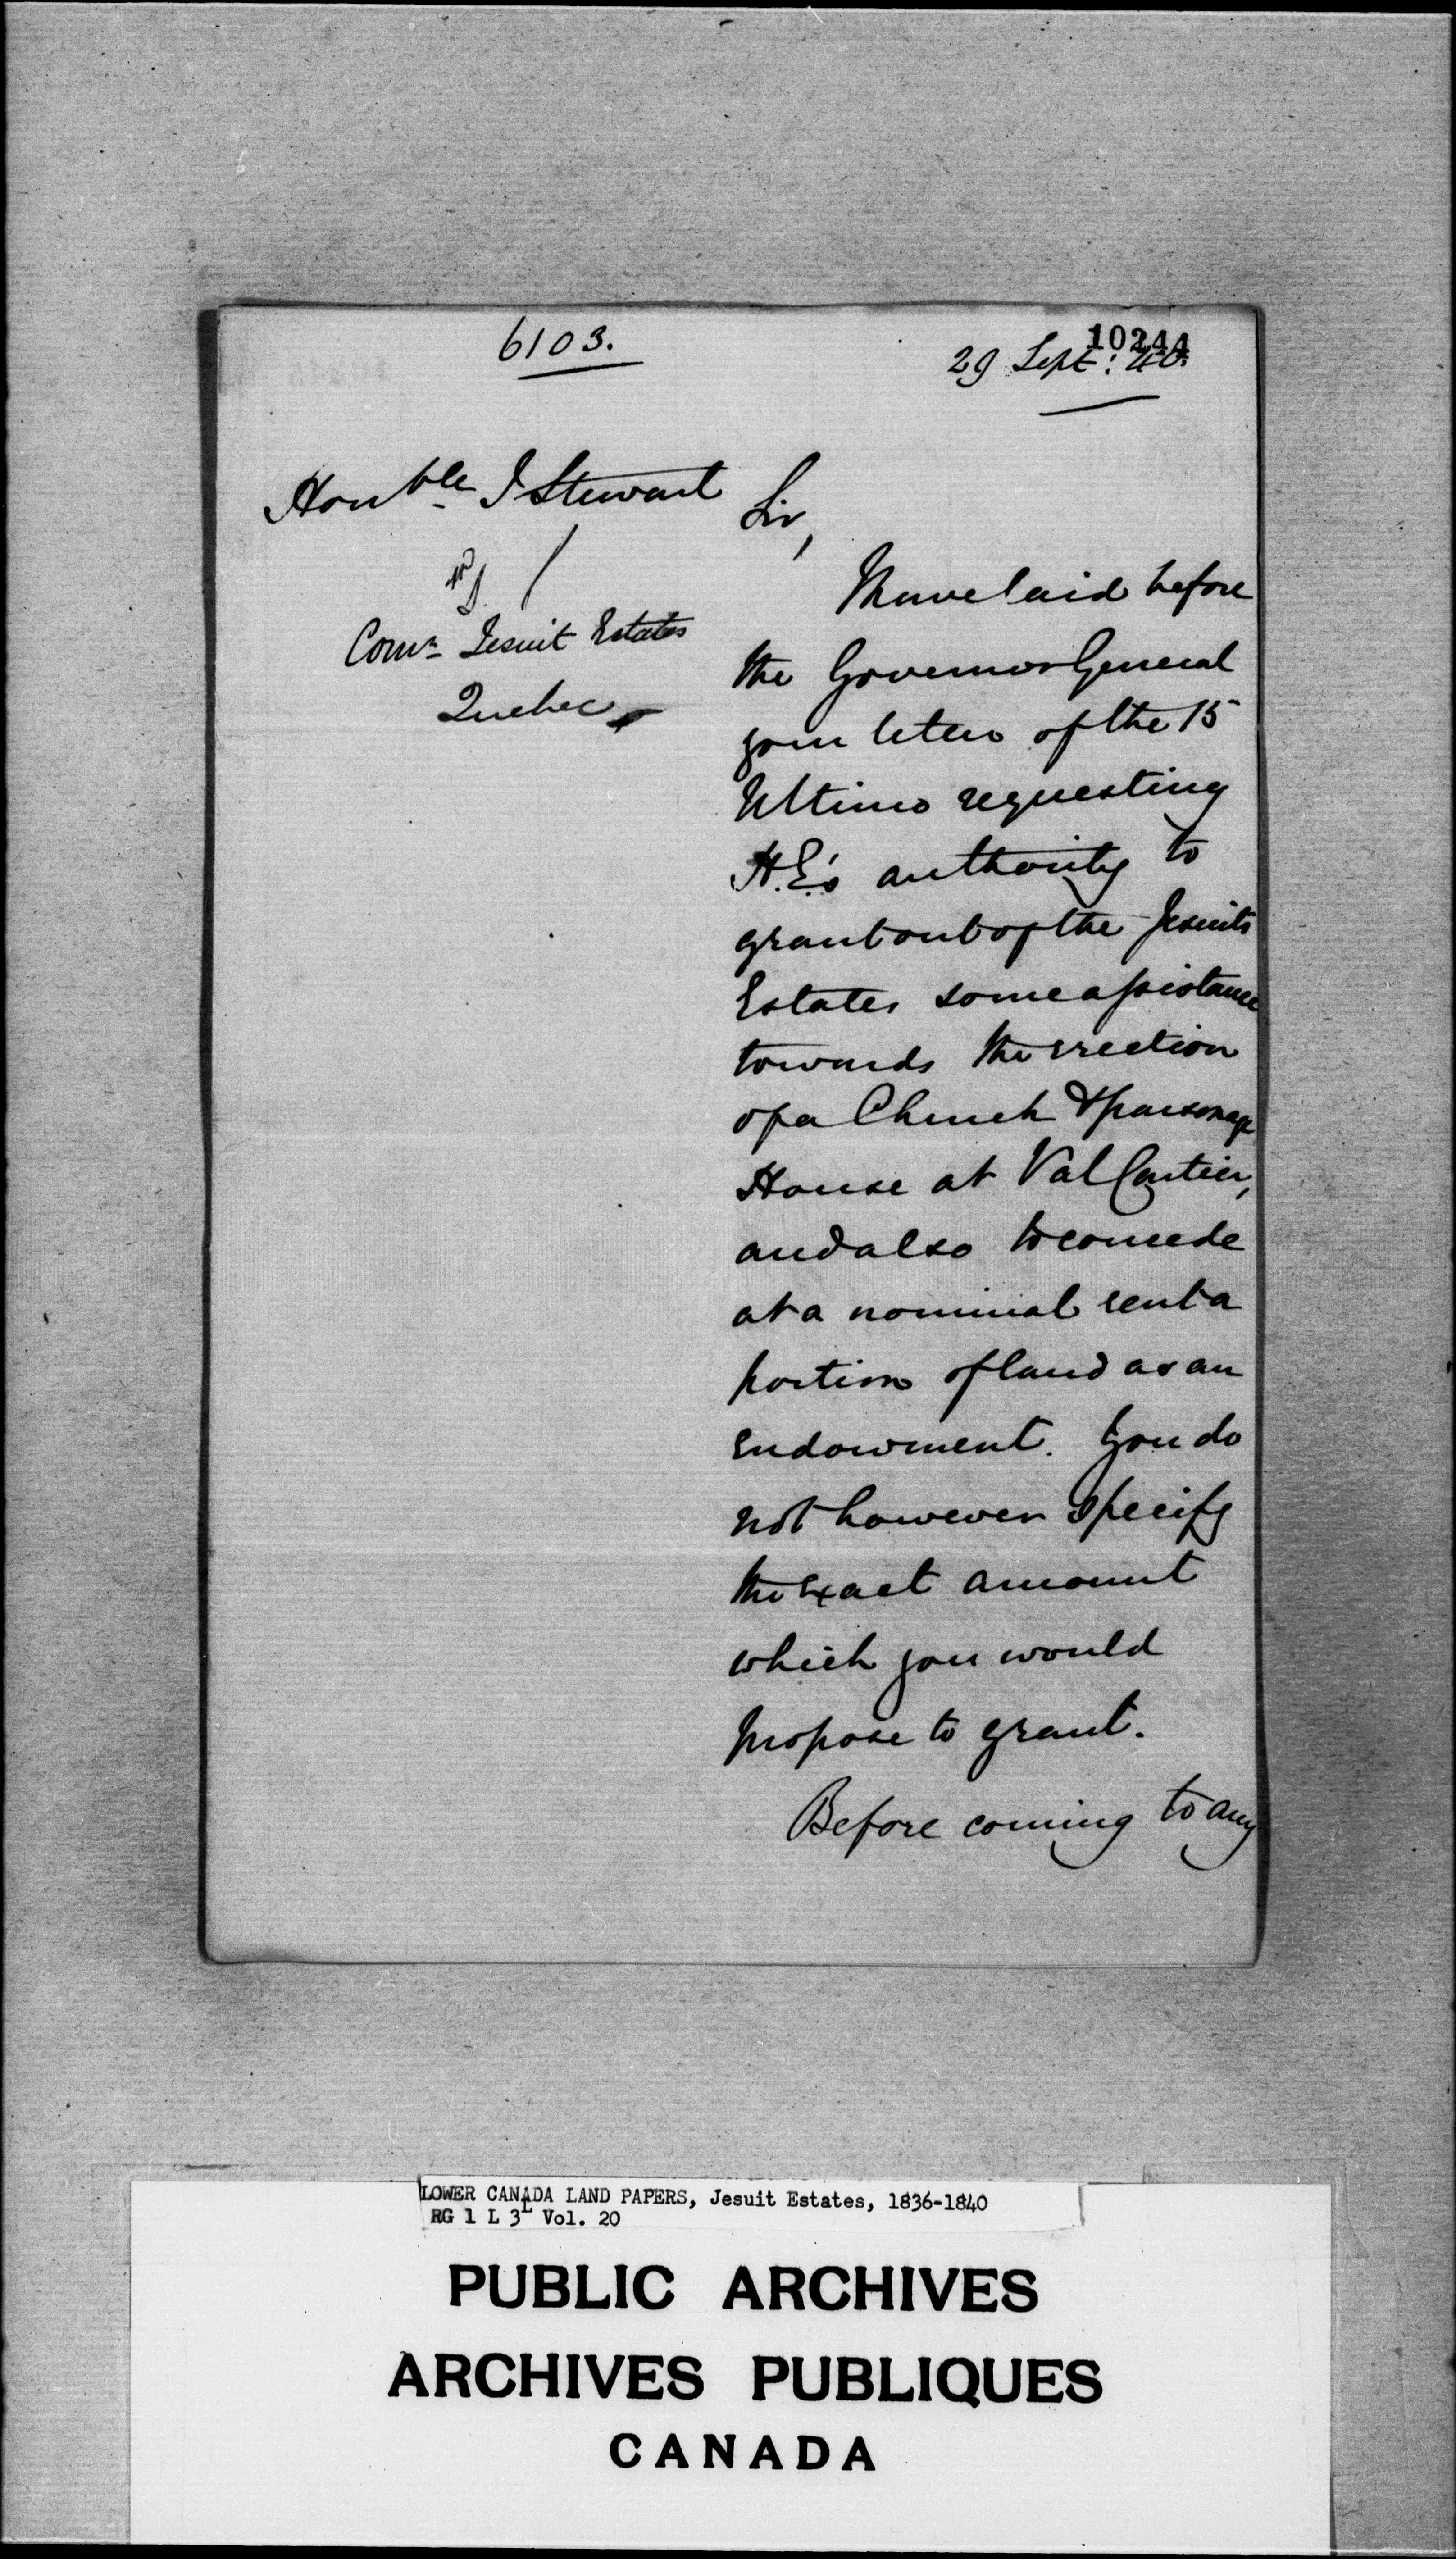 6103.
10244
29 Sept: 40.
Honble J Stewart
Comr Jesuit Estates
Quebec
Sir,
I have laid before
the Governor General
your letter of the 15
Ultimo requesting
H.E's authority to
grant out of the Jesuits
Estates some assistance
towards the erection
of a Church & parsonage
House at Val Cartier,
and also to concede
at a nominal rent a
portion of land as an
endowment. You do
not however specify
the exact amount
which you would
propose to grant.
Before coming to any
LOWER CANADA LAND PAPERS, Jesuit Estates, 1836-1840
RG 1 L 3L Vol. 20
PUBLIC ARCHIVES
ARCHIVES PUBLIQUES
CANADA